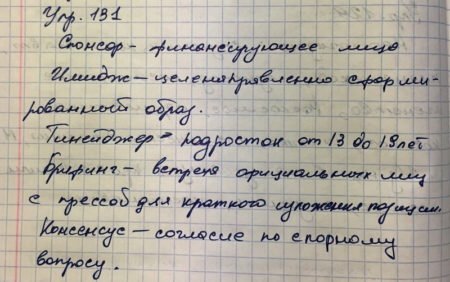 Упр. 131
Спонсор - финансирующее лицо
Имидж — целенаправленно сформи-
рованный образ.
Тинейджер - подросток от 13 до 19 лет
Брифинг - встреча официальных лиц
с прессой для краткого изложения позиции.
Консенсус — согласие по спорному
вопросу.